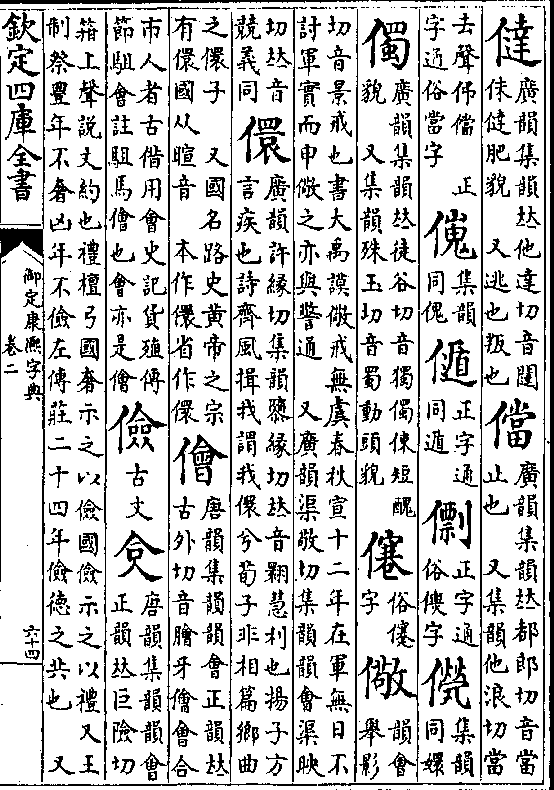 㒓廣韻集韻𠀤他達切音闥佅㒓肥貌 又逃也叛也儅廣韻集韻𠀤都郎切音當止也 又集韻他浪切當
去聲㑋儅 正字通俗當字 集韻同傀 正字通同遁 正字通俗 字儝集韻同嬛
㒔廣韻集韻𠀤徒谷切音獨㒔倲短醜貌 又集韻殊玉切音蜀動頭貌 俗 字儆韻會舉影
切音景戒也書大禹謨儆戒無虞春秋宣十二年在軍無日不討軍實而申儆之亦與警通 又廣韻渠敬切集韻韻會渠映
切𠀤音競義同儇廣韻許緣切集韻隳緣切𠀤音翾慧利也揚子方言疾也詩齊風揖我謂我儇兮荀子非相篇鄉曲
之儇子 又國名路史黃帝之宗有儇國从暄音 本作儇省作儇儈唐韻集韻韻會正韻𠀤古外切音膾牙儈會合
市人者古偕用會史記貨殖傳節駔會註駔馬儈也會亦是儈儉古文㑒唐韻集韻韻會正韻𠀤巨險切
箝上聲說文約也禮檀弓國奢示之以儉國儉示之以禮又王制祭豐年不奢凶年不儉左傳莊二十四年儉德之共也 又
欽定四庫全書 御定康熙字典 卷二 六十四